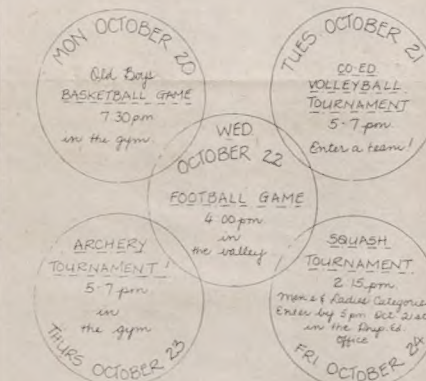 MON OCTOBER 20
Old Boys
BASKETBALL GAME
7.30pm
in the gym.
TUES OCTOBER 21
CO-ED
VOLLEYBALL
TOURNAMENT
5-7 pm.
Enter a team!
WED.
OCTOBER 22
FOOTBALL GAME
4.00pm
in
the valley
ARCHERY
TOURNAMENT!
5-7pm.
in
the gym
THURS OCTOBER 23
SQUASH
TOURNAMENT
2.15pm.
Men's & Ladies Categories
Enter by 5pm Oct 21st
in the Phys. Ed.
Office
FRI OCTOBER 24